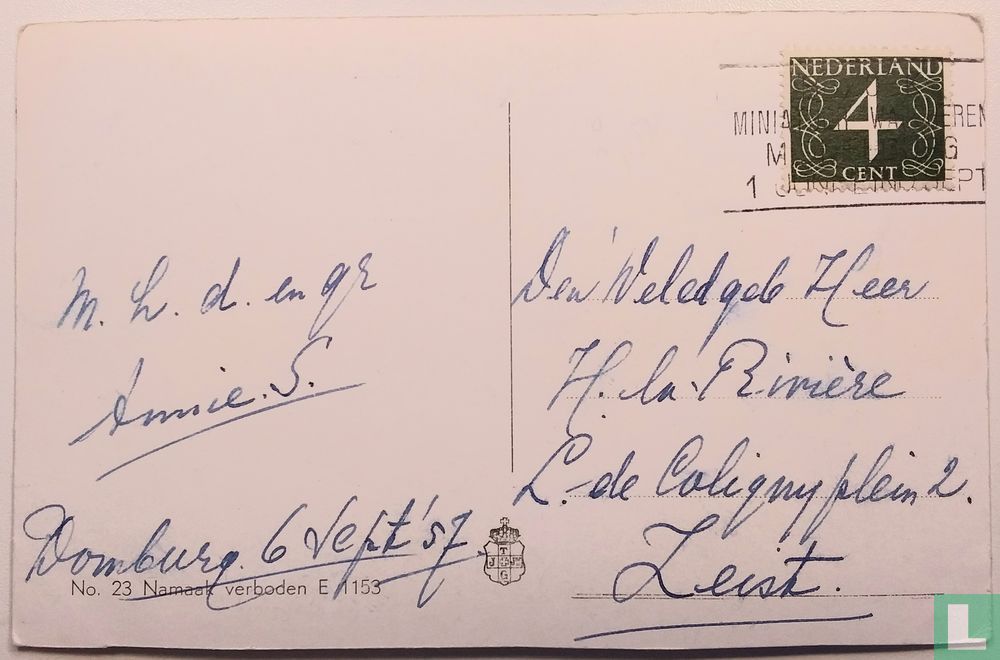 NEDERLAND
4
CENT
MINIA WA EREN
M G
1 JUNI EIND SEPT
M. h. d. en gr
Annie. S.
Domburg. 6 Sept '57
No. 23 Namaak verboden E 1153
T
J J
G
Den Weledgeb Heer
H. la Rivière
L. de Colignyplein 2.
Zeist.
L